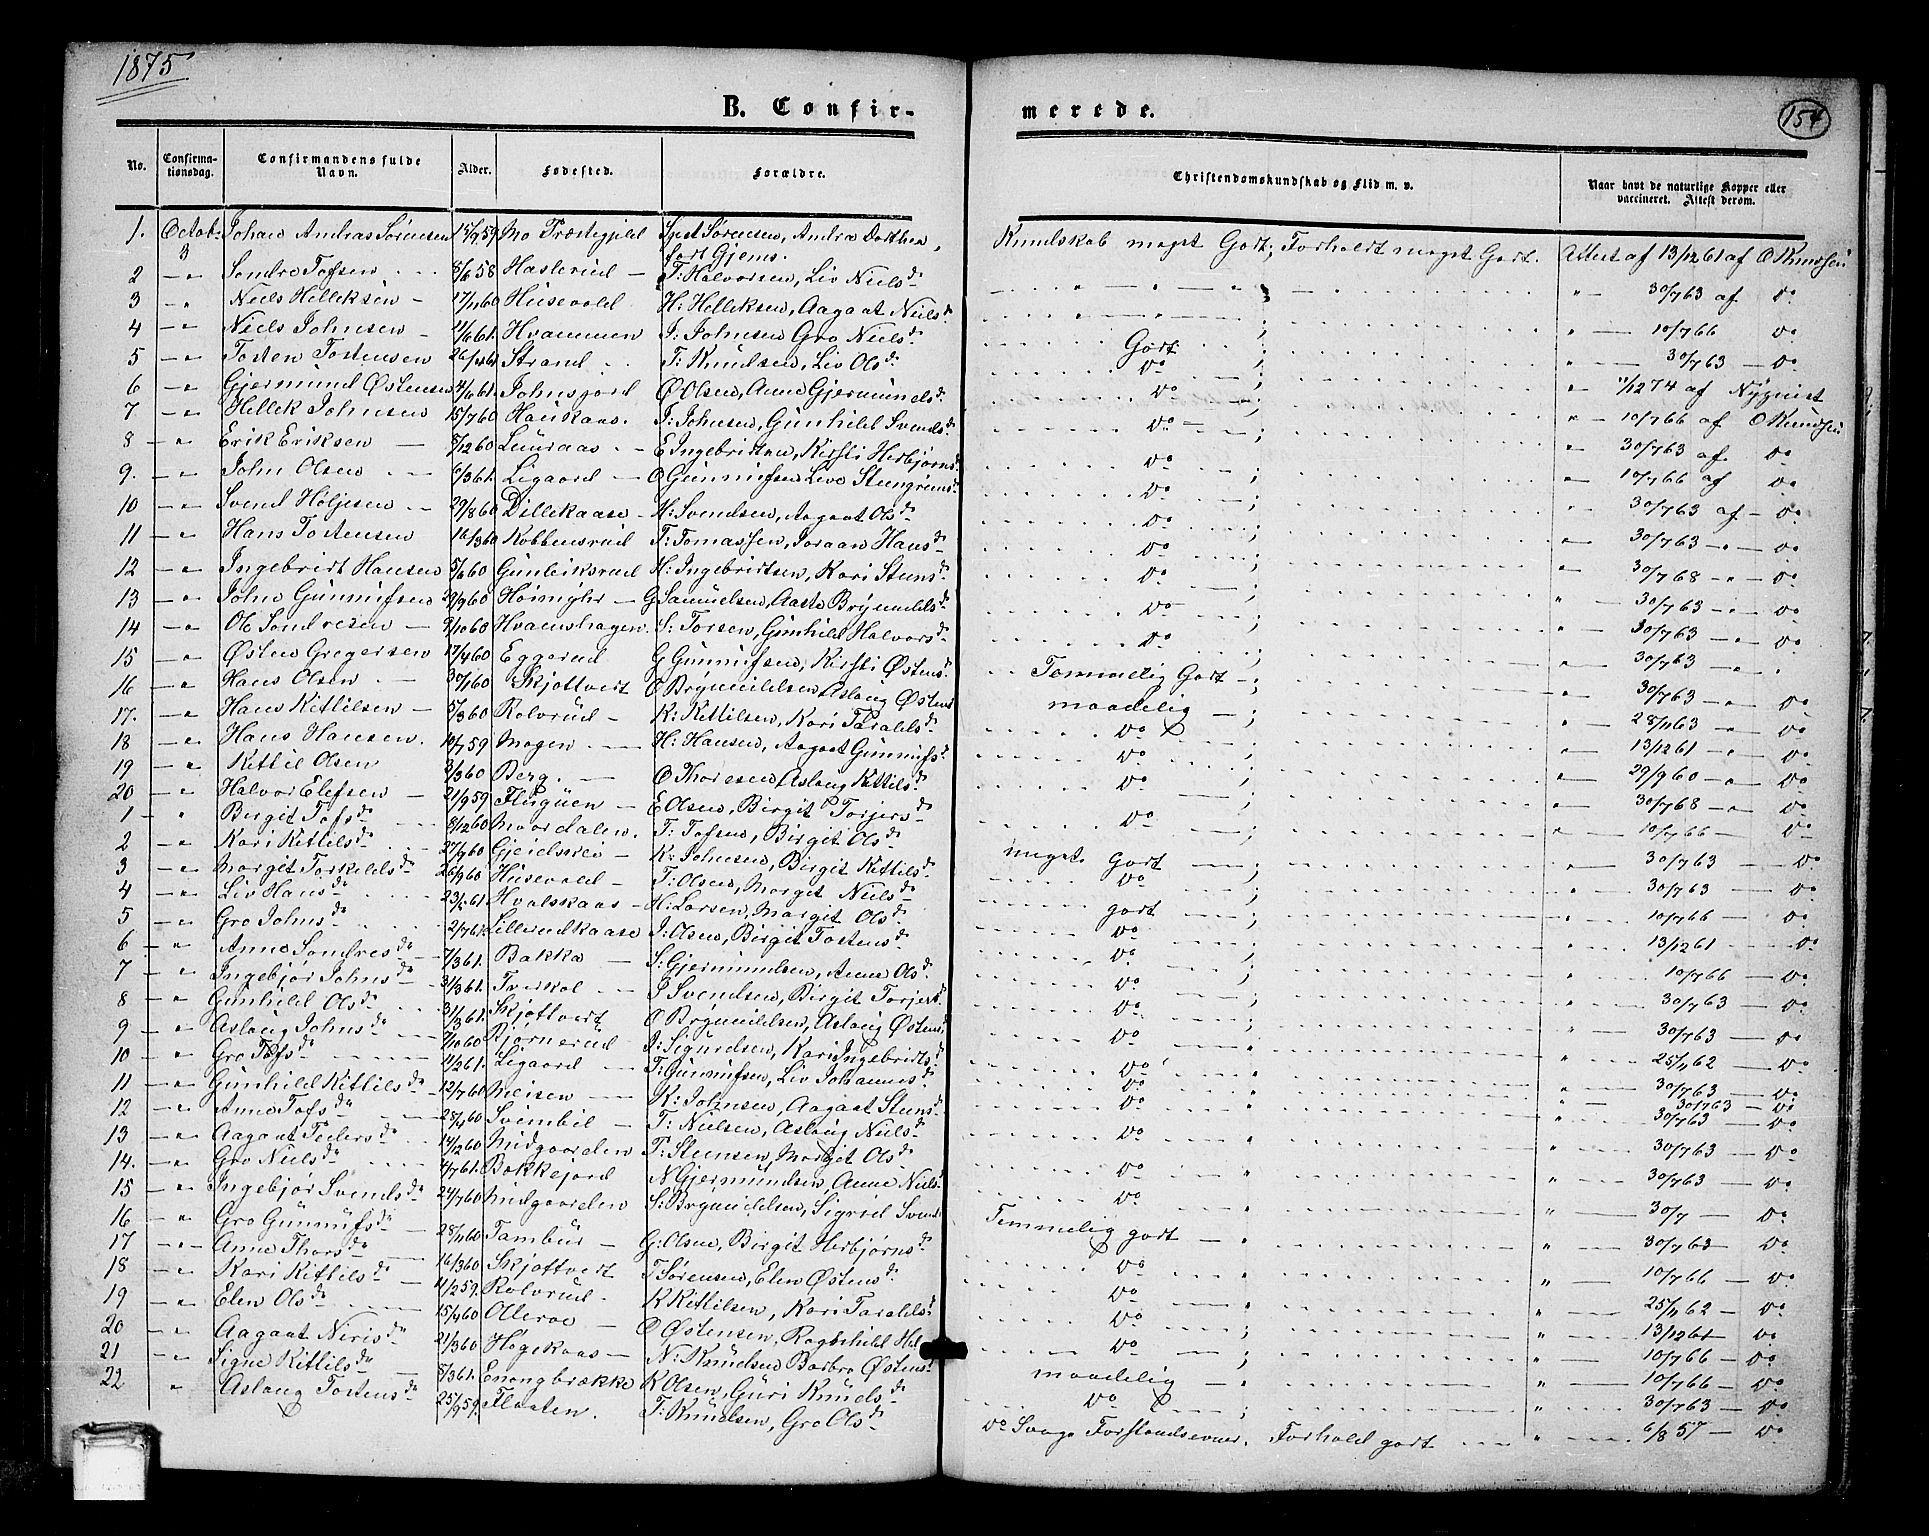 1875
B. Confir-
merede.
154
No.
Confirma-
tionsdag.
Confirmandens fulde
Navn.
Alder.
Fødested.
Forældre.
Christendomskundskab og Flid m. v.
Naar havt de naturlige Kopper eller
vaccineret. Attest derom.
1. Octob. 3 Johan Andreas Sørensen 15/9 59 Mo Præstegjeld Sørensen, Andrea Dorthea
født Gjems. Kundskab meget Godt; Forholdt meget Godt. Attest af 13/12 61 af O Knudsen
2 — " Sondre Tofsen 8/6 58 Haslerud — T: Halvorsen, Liv Nielsd. " — 30/7 63 af do
3 " Niels Helleksen — 17/11 60 Husevold H: Helleksen, Aagaat Nielsd. " — 10/7 66 do
4 — " Niels Johnsen — 11/6 61. Hvammen J: Johnsen Gro Nielsd. Godt " — 30/7 63 — do
5 — " Tosten Tostensen 26/4 61 Strand T: Knudsen, Liv Olsd. do " 1/12 74 af Nyquist
6 — " Gjermund Østensen 4/6 61. Johnsjord Ø Olsen, Anne Gjermundsd. do " 10/7 66 af O Knudsen
7 — " Hellek Johnsen 15/7 60 Haukaas. J: Johnsen, Gunhild Svendsd. do " 30/7 63 af do
8 — " Erik Eriksen — 8/12 60 Luraas — E Ingebretsen, Kirsti Herbjørnsd. do " 10/7 66 af do
9. — " John Olsen 6/3 61. Ligaard — O Gunnufsen Live Stengrimsd. do " 30/7 63 af — do
10 — " Svend Høljesen 29/8 60 Dillekaase H: Svendsen, Aagaat Olsd. do 30/7 63 — do
11 — " Hans Tostensen 16/3 60 Kobbensrud T: Tomassen, Joraan Hansd. do 30/7 68 — " — do
12 — " Ingebrigt Hansen 5/6 60 Gunleiksrud H: Ingebrigtsen, Kari Stensd. do 30/7 63 — " do
13 — " John Gunnufsen 9/9 60 — G Samuelsen, Aaste Brynildsd. do 30/7 63 — " do
14 — " Ole Sondresen — 9/10 60 Hvamshagen. S: Torsen, Gunhild Halvorsd. do 30/7 63 — "
15 — " Østen Gregersen 17/4 60 Eggerud G Gunnufsen, Kirsti Østensd. Temmelig Godt — 30/7 63 — " do
16 — " Hans Olsen — 30/1 60 Skjøttvert O Brynildsen Aslaug Østensd. maadelig — 28/11 63 do
17. — " Hans Kittilsen — 5/3 60 Rolvsrud — K: Kittilsen, Kari Taraldsd. do 13/12 61 — " do
18 — " Hans Hansen. 10/7 59 Mogen — H: Hansen, Aagaat Gunnufsd. do 29/9 60 — " do
19 — " Kittil Olsen 3/3 60 Berg. — O Thoresen, Aslaug Kittilsd. do 30/7 68 — " do
20 " Halvor Elefsen — 21/9 59 Fluguen — E Olsen, Birgit Torjersd. do 10/7 66 — do
1 " Birgit Tofsd. 8/12 60 Mordalen. T: Tofsen, Birgit Olsd. meget Godt — 30/7 63 — do
2 — " Kari Kittilsd. 27/9 60 — K: Johnsen, Birgit Kittilsd. do 30/7 63 — do
3 — " Margit Torkeldsd. 26/9 60 Husevold — T: Olsen, Margit Nielsd. godt 10/7 66 — do
4 — " Liv Hansd. 23/5 61 Hvalskaas — H: Larsen, Margit Olsd. do 13/12 61 — do
5 — " Gro Johnsd. 2/7 61 Lillerudkaase J: Olsen, Birgit Tostensd. do 10/7 66 — do
6 — " Anne Sondresd. — 7/3 61. Bakka — S: Gjermundsen, Anne Olsd. do 30/7 63 — do
7 — " Ingebjør Johnsd. 31/3 61. Tverkol — J Svendsen, Birgit Torjersd. do 30/7 63 — do
8 — " Gunhild Olsd. 31/3 61. Skjøttvert O Brynildsen, Aslaug Østensd. do 25/11 62 — do
9 — " Aslaug Johnsd. 7/10 60 Bjørnerud J: Sigurdsen, Kari Ingebrigtsd. do 30/7 63 — do
10 — " Gro Tofsd. 11/2 61. Ligaard — T: Gunnufsen, Liv Johannisd. do 30/7 63 — do
11 — " Gunhild Kittilsd. 12/7 60 Meisen — K: Johnsen, Aagaat Stensd. do 30/7 63 — do
12 — " Anne Tofsd. 28/4 60 Svimbil — T: Nielsen, Aslaug Nielsd. do 30/7 63 — do
13 — " Aagaat Pedersd. 14/2 60 Midgaarden P: Stensen, Margit Olsd. do 30/7 63 — do
14. — " Gro Nielsd. 4/7 61. Bakkejord N Gjermundsen, Anne Nielsd. do 30/7 — do
15 — " Ingebjør Svendsd. 24/7 60 Midgaarden S: Brynildsen, Sigrid Svendsd. Temmelig godt — 30/7 63 — do
16 — " Gro Gunnufsd. 28/11 60 Tambur — G: Olsen, Birgit Herbjørnsd. do 10/7 66 — do
17 — " Anne Thorsd. 16/3 60 Skjøttvert T Sørensen, Elen Østensd. do 25/11 62 — do
18 — " Kari Kittilsd. — 11/2 59. Rolvsrud. K Kittilsen, Kari Taraldsd. do 13/12 61 — do
19 — " Elen Olsd. 15/4 60 Alleroe — O Østensen, Ragnhild do 10/7 66 — do
20 — " Aagaat Nerisd. 21/3 60 Høgekaas — N: Knudsen Barbro Østensd. maadelig — 10/7 66 — do
21 — " Signe Kittilsd. 5/3 61. K Olsen, Guri Knudsd. do 30/7 63 — do
22 " Aslaug Tostensd. 25/9 59. Flaaten. T: Knudsen, Gro Olsd. do Svage Forstandsevner. Forhold godt — " 6/8 57 — do